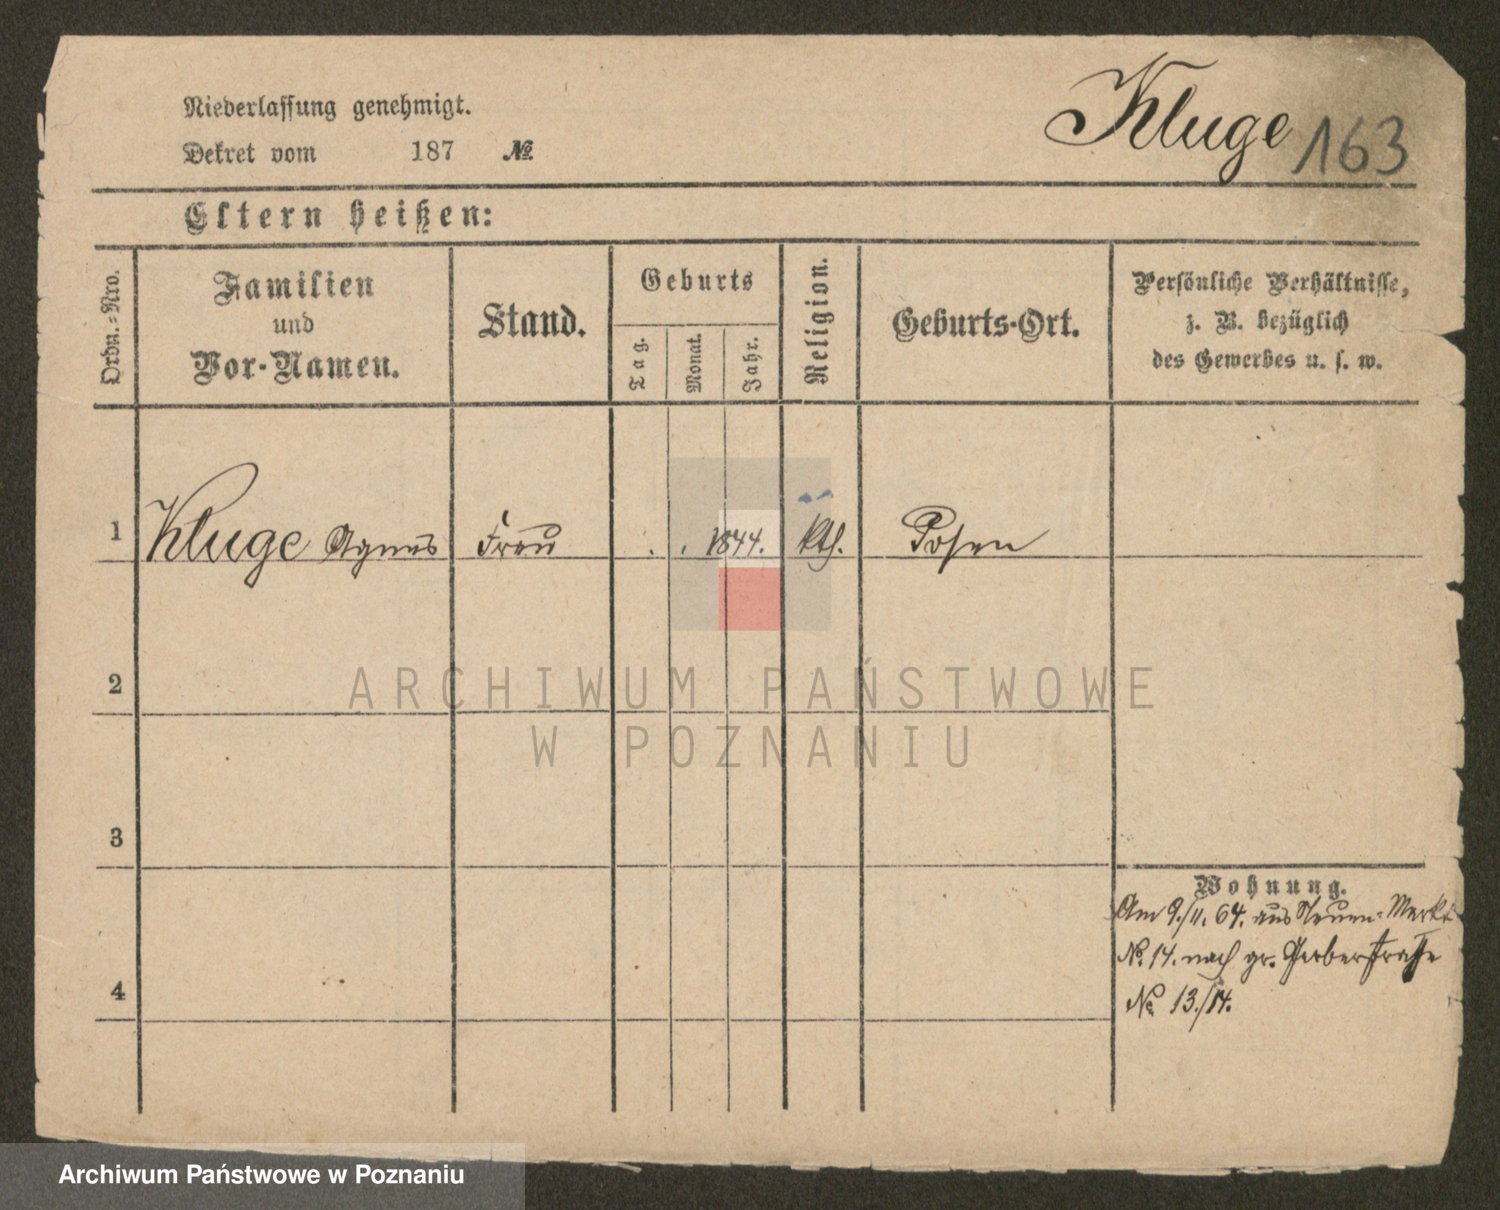 Kluge 163
Niederlassung genehmigt.
Dekret vom 187 №
Eltern heißen:
Ordn.-Nro.
Familien
und
Vor-Namen.
Stand.
Geburts
Tag.
Monat.
Jahr.
Religion.
Geburts-Ort.
Persönliche Verhältnisse,
z. B. bezüglich
des Gewerbes u. s. w.
1 Kluge Agnes Frau . . 1844. kth. Posen
2
3
4
Wohnung.
Am 9./11. 64. aus Neuen-Markt
No. 14. nach gr. Gerberstraße
No 13./14.
ARCHIWUM PAŃSTWOWE
W POZNANIU
Archiwum Państwowe w Poznaniu